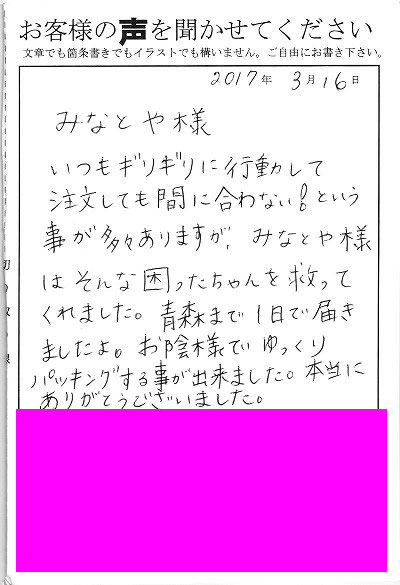 お客様の声を聞かせてください
文章でも箇条書きでもイラストでも構いません。ご自由にお書き下さい。
2017年 3月16日
みなとや様
いつもギリギリに行動して
注文しても間に合わない!という
事が多々ありますが、みなとや様
はそんな困ったちゃんを救って
くれました。青森まで1日で届き
ましたよ。お陰様でゆっくり
パッキングする事が出来ました。本当に
ありがとうございました。